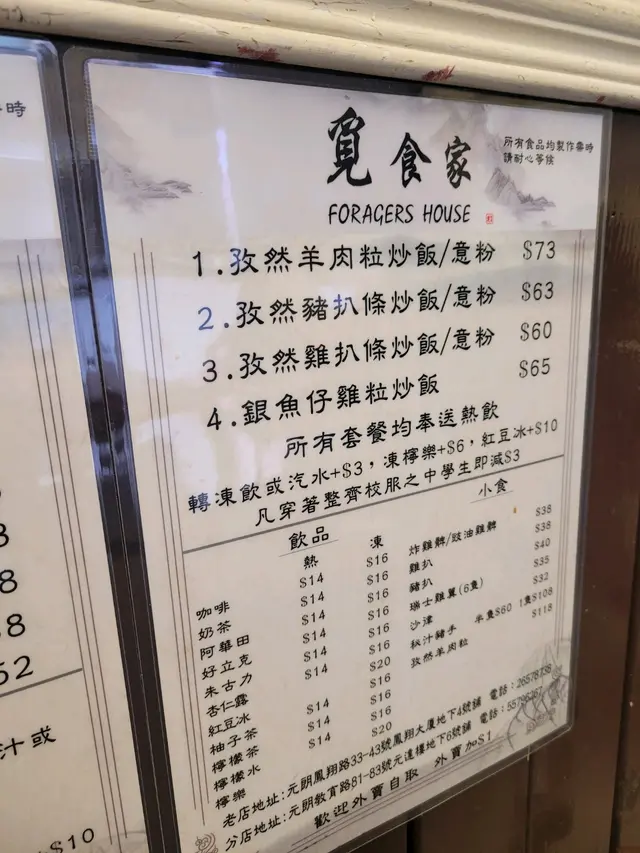 覓食家
所有食品均製作需時
請耐心等候
FORAGERS HOUSE
1.孜然羊肉粒炒飯/意粉 $73
2.孜然豬扒條炒飯/意粉 $63
3.孜然雞扒條炒飯/意粉 $60
4.銀魚仔雞粒炒飯 $65
所有套餐均奉送熱飲
轉凍飲或汽水+$3，凍檸樂+$6，紅豆冰+$10
凡穿著整齊校服之中學生即減$3
飲品
熱 凍
咖啡 $14 $16
奶茶 $14 $16
阿華田 $14 $16
好立克 $14 $16
朱古力 $14 $16
杏仁露 $14 $16
紅豆冰 $20
柚子茶 $14 $16
檸檬茶 $14 $16
檸檬水 $14 $16
檸樂 $20
小食
炸雞髀/豉油雞髀 $38
雞扒 $38
豬扒 $40
瑞士雞翼(6隻) $35
沙律 $32
秘汁豬手 半隻$60 1隻$108
孜然羊肉粒 $118
老店地址:元朗鳳翔路33-43號鳳翔大廈地下4號舖 電話:26578738
分店地址:元朗教育路81-83號元達樓地下6號舖 電話:
歡迎外賣自取 外賣加$1
時
8
52
汁或
$10